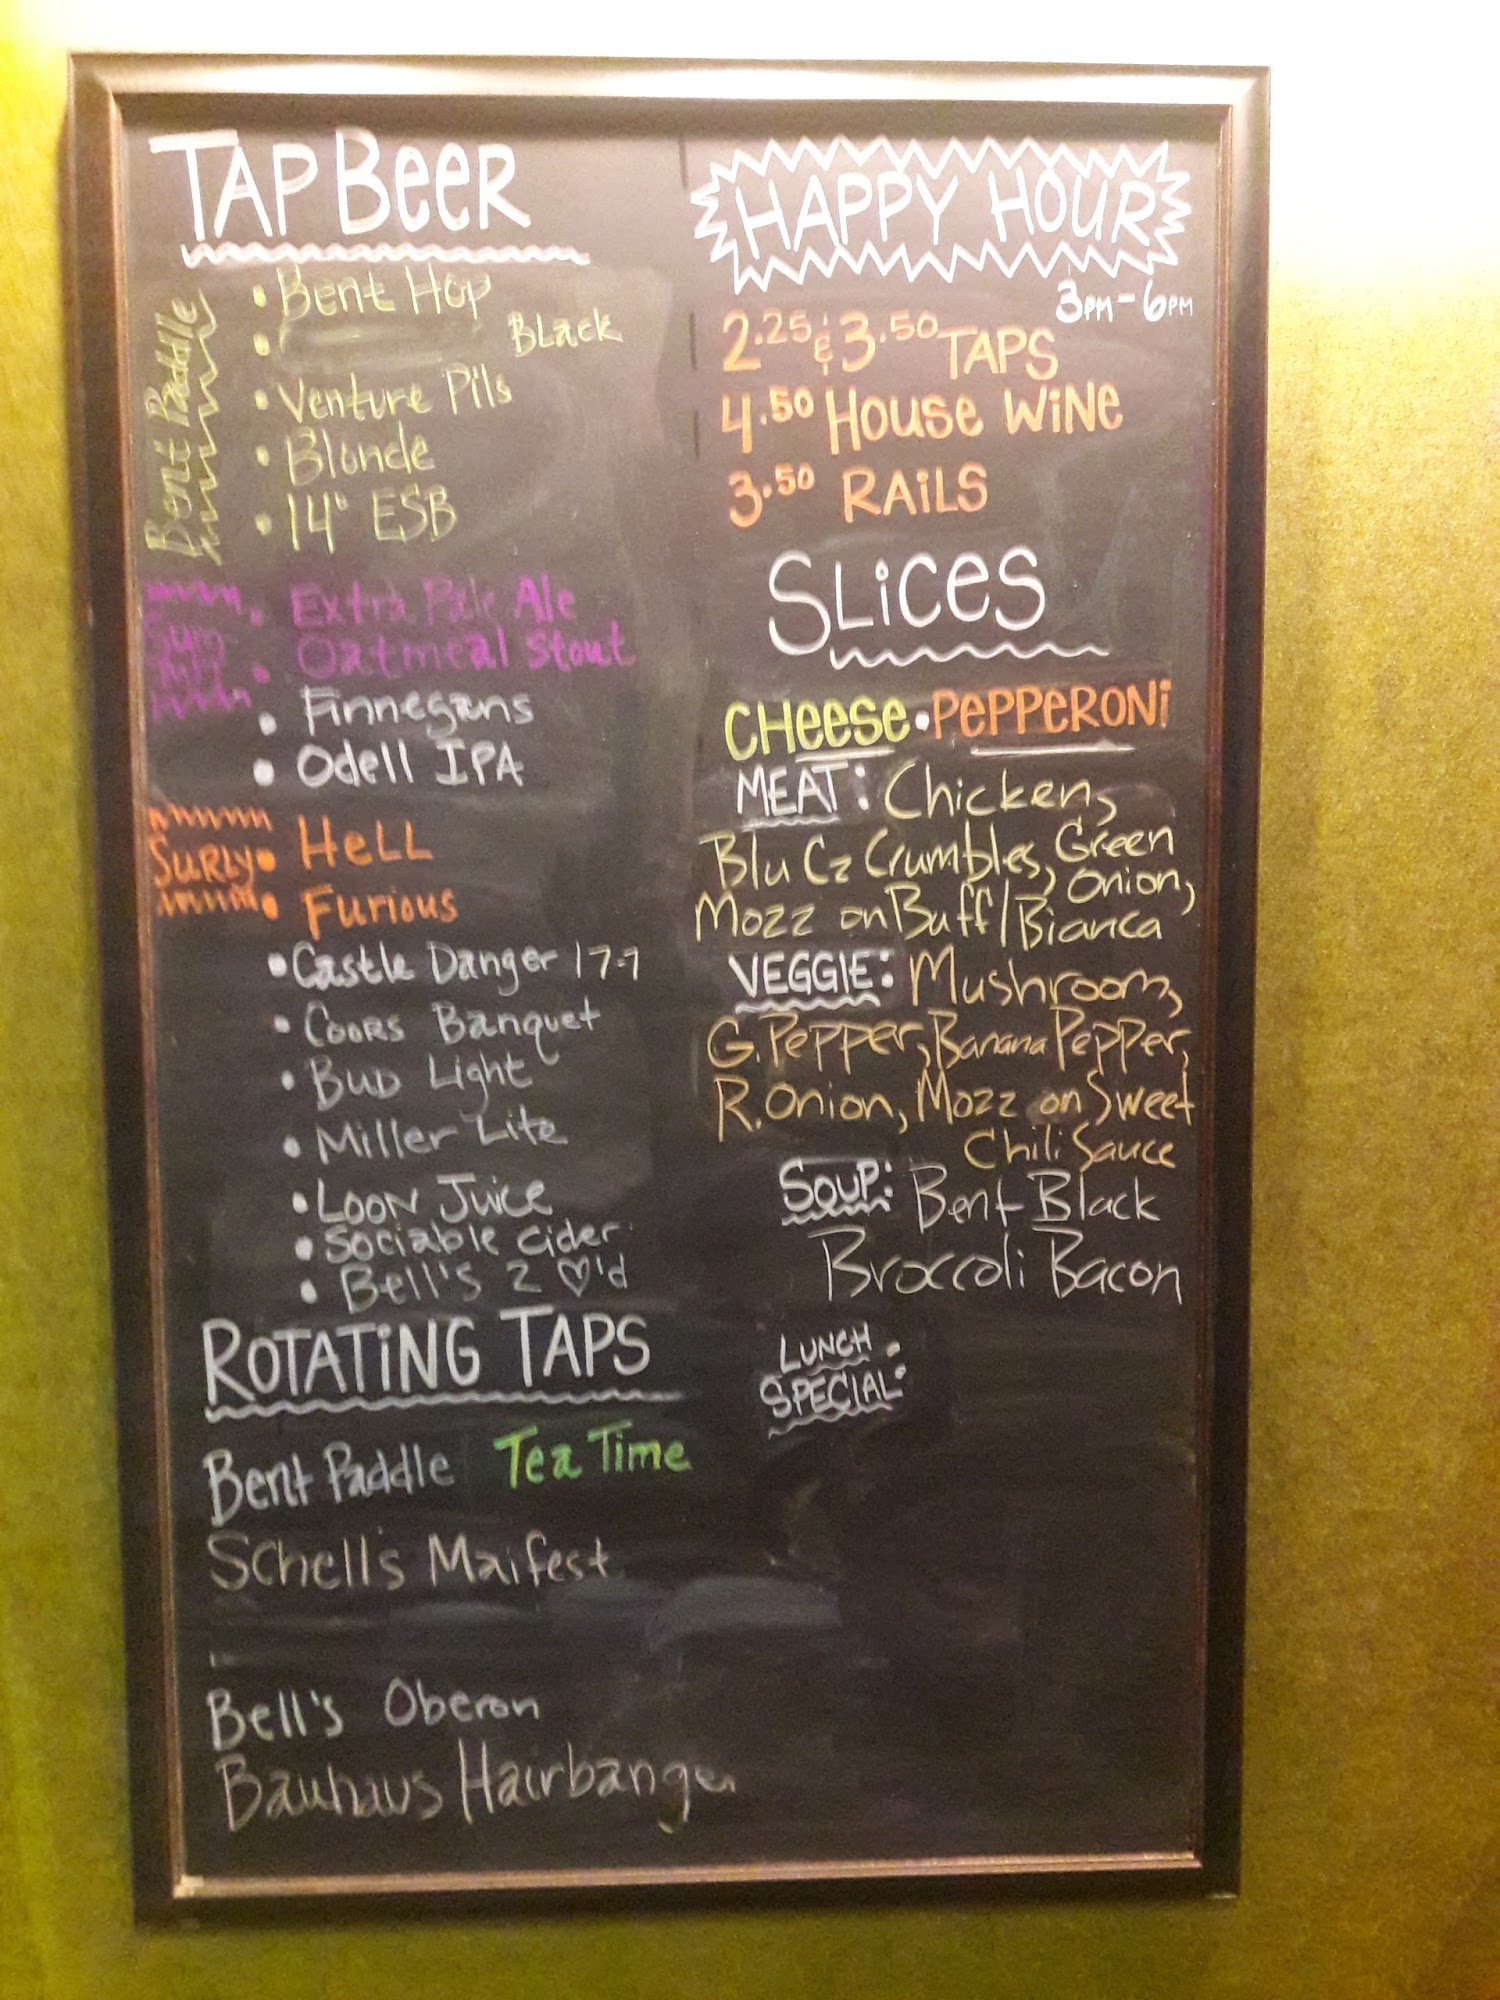 TAP BEER
Bent Paddle
• Bent Hop
• Black
• Venture Pils
• Blonde
• 14° ESB
• Extra Pale Ale
• Oatmeal Stout
• Finnegans
• Odell IPA
SURLY
• HELL
• Furious
• Castle Danger 17-7
• Coors Banquet
• Bud Light
• Miller Lite
• Loon Juice
• Sociable Cider
• Bell's 2 ♡'d
ROTATING TAPS
Bent Paddle Tea Time
Schell's Maifest
Bell's Oberon
Bauhaus Hairbanger
HAPPY HOUR
3PM - 6PM
2.25 & 3.50 TAPS
4.50 HOUSE WINE
3.50 RAILS
SLICES
CHEESE • PEPPERONI
MEAT: Chicken,
Blu Cz Crumbles, Green
Onion,
Mozz on Buff/Bianca
VEGGIE: Mushroom,
G. Pepper, Banana Pepper,
R. Onion, Mozz on Sweet
Chili Sauce
SOUP: Bent Black
Broccoli Bacon
LUNCH
SPECIAL: